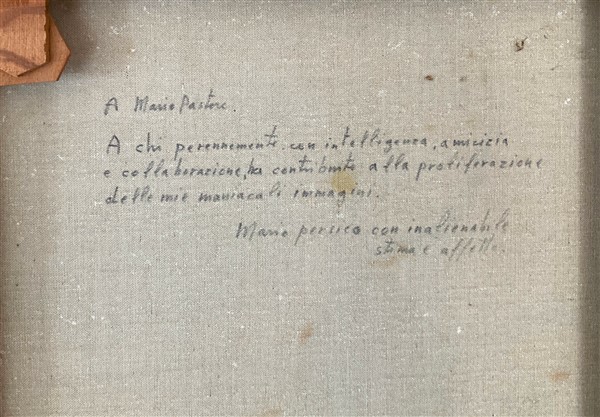 A Mario Pastore.
A chi perennemente con intelligenza, amicizia
e collaborazione, ha contribuito alla proliferazione
delle mie maniacali immagini.
Mario persico con inalienabile
stima e affetto.